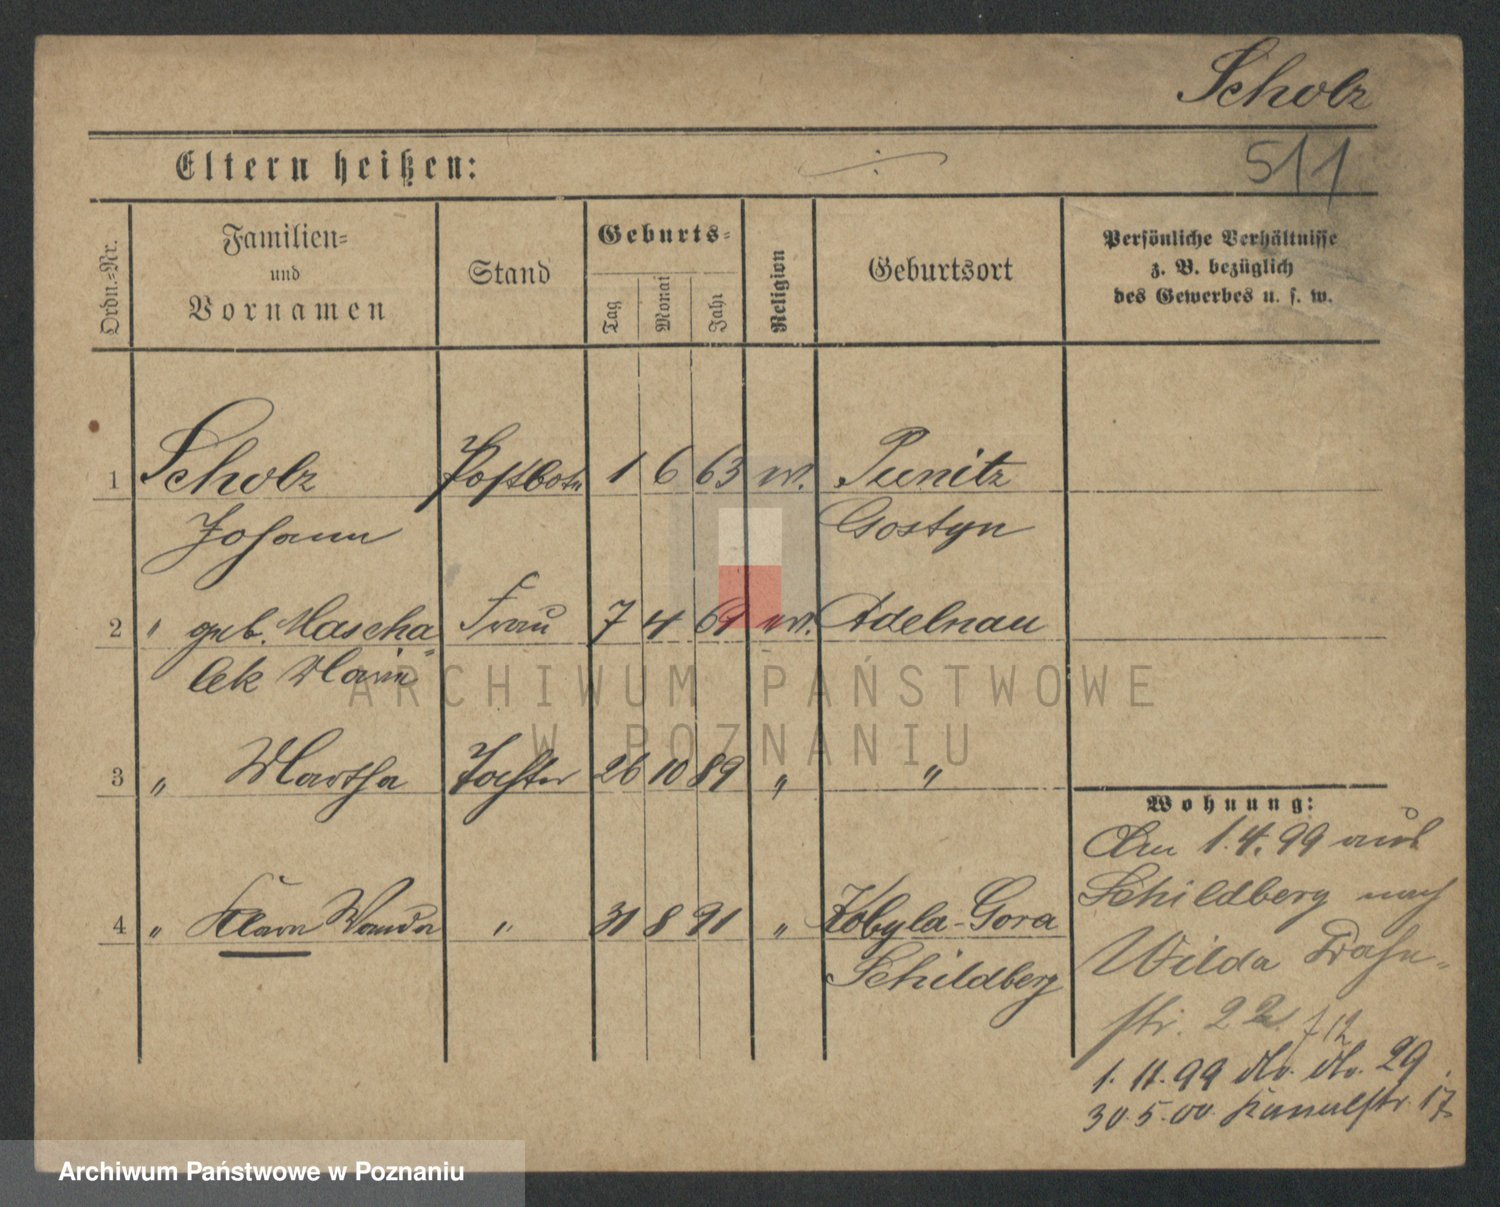 Scholz
511
Eltern heißen:
Ordn.-Nr.
Familien-
und
Vornamen
Stand
Geburts-
Tag
Monat
Jahr
Religion
Geburtsort
Persönliche Verhältnisse
z. B. bezüglich
des Gewerbes u. s. w.
1 Scholz Postbote 1 6 63 Punitz
Johann Gostyn
2 " geb. Mascha Frau 7 4 61 Adelnau
lek Marie
3 " Martha Tochter 26 10 89 " "
4 " Klara Wanda " 31 8 91 " Kobyla-Gora
Schildberg
Wohnung:
Am 1.4.99 aus
Schildberg nach
Wilda Bahn-
str. 22
1.11.99 do. do. 29
30.5.00 Kanalstr. 17
ARCHIWUM PAŃSTWOWE
W POZNANIU
Archiwum Państwowe w Poznaniu